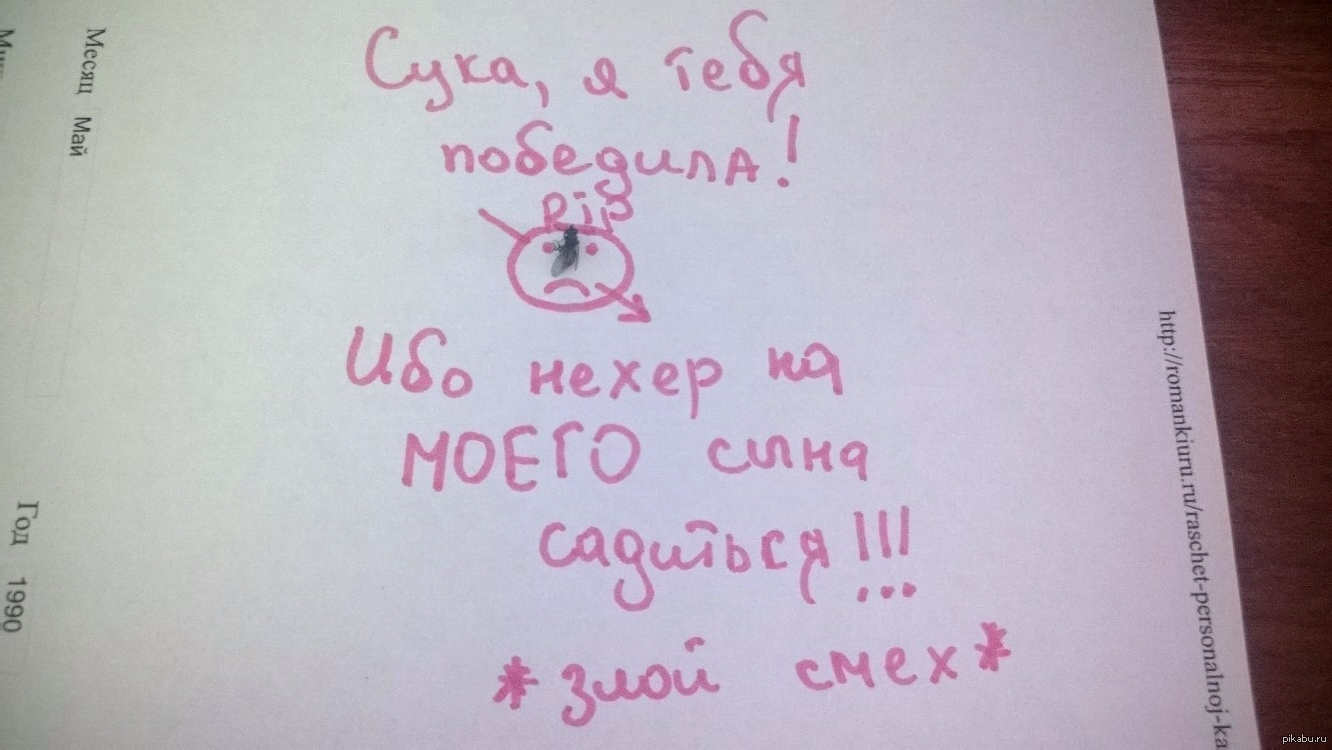 Сука, я тебя
победила!
RiP
Ибо нехер на
МОЕГО сына
садиться!!!
*злой смех*
Месяц Май
Год 1990
http://romankiuru.ru/raschet-personalnoj-ka
pikabu.ru